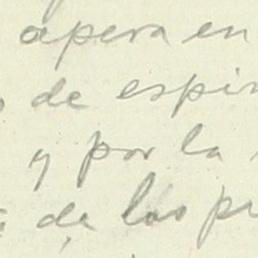 apera en
de espir
y por la
de los pr